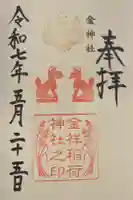 奉拝
金神社
金祥稲荷
神社之印
令和七年五月二十五日